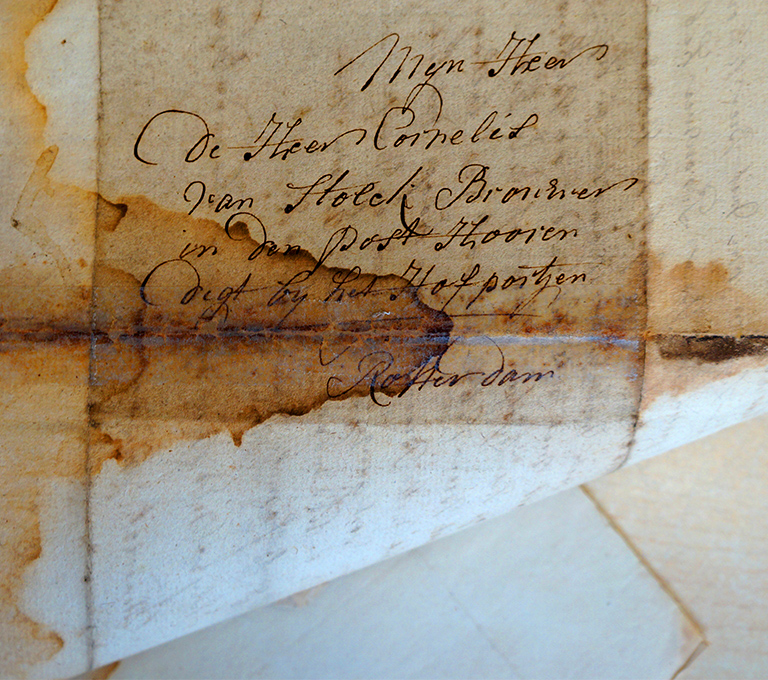 Myn Heer
De Heer Cornelis
van Stolck Brouwer
in den post Hooren
digt by het Hofpoortjen
Rotterdam